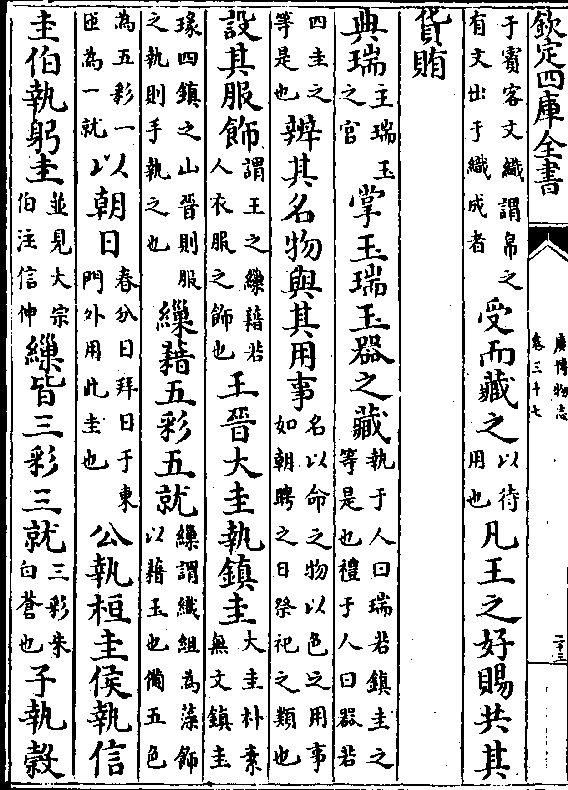 欽定四庫全書
廣博物志
卷三十七
二十三
于賓客文織謂帛之有文出于織成者受而藏之以待用也凡王之好賜共其
貨賄
典瑞主瑞玉之官掌玉瑞玉器之藏執于人曰瑞若鎮圭之等是也禮于人曰器若
四圭之等是也辨其名物與其用事名以命之物以色之用事如朝聘之日祭祀之類也
設其服飾謂王之繅藉若人衣服之飾也王晉大圭執鎮圭大圭朴素無文鎮圭
瑑四鎮之山晉則服之執則手執之也繅藉五彩五就繅謂織組為藻飾以藉玉也備五色
為五彩一匝為一就以朝日春分日拜日于東門外用此圭也公執桓圭侯執信
圭伯執躬圭並見大宗伯注信伸繅皆三彩三就三彩朱白蒼也子執穀